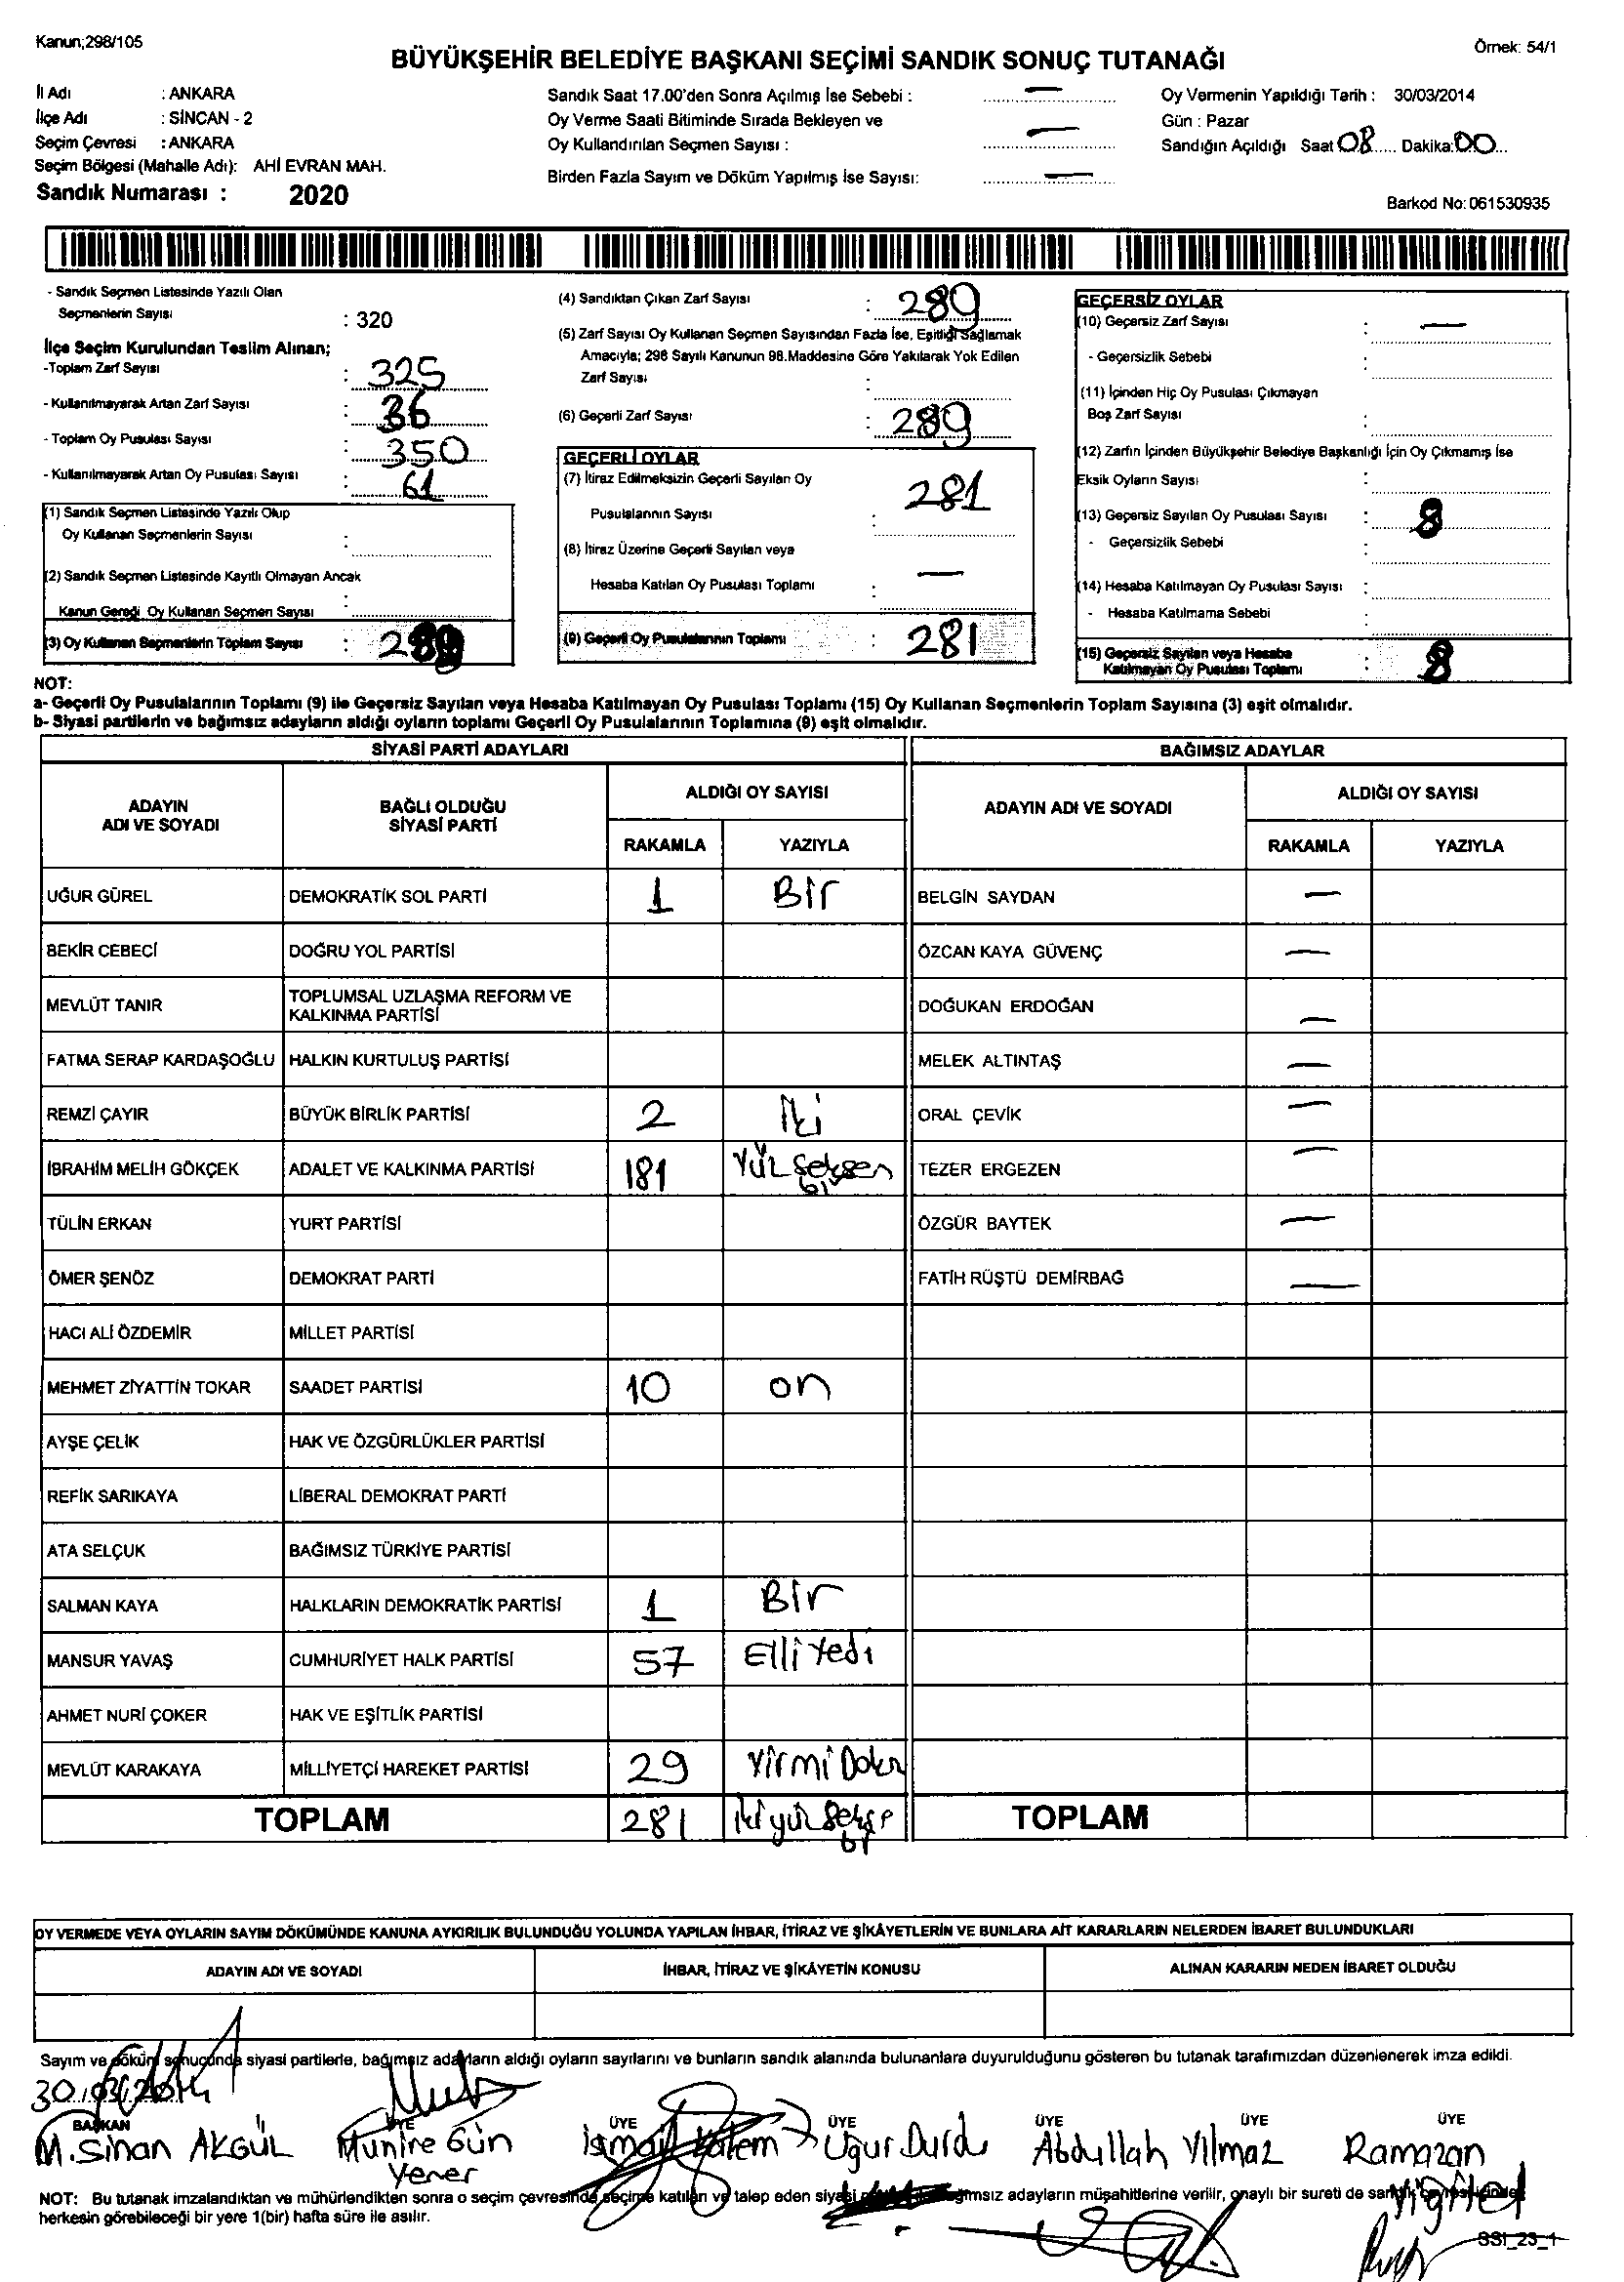 Kanun;298/105
Örnek: 54/1
BÜYÜKŞEHİR BELEDİYE BAŞKANI SEÇİMİ SANDIK SONUÇ TUTANAĞI
İl Adı : ANKARA
İlçe Adı : SİNCAN - 2
Seçim Çevresi : ANKARA
Seçim Bölgesi (Mahalle Adı): AHİ EVRAN MAH.
Sandık Numarası : 2020
Sandık Saat 17.00'den Sonra Açılmış İse Sebebi : —
Oy Verme Saati Bitiminde Sırada Bekleyen ve
Oy Kullandırılan Seçmen Sayısı : —
Birden Fazla Sayım ve Döküm Yapılmış İse Sayısı: —
Oy Vermenin Yapıldığı Tarih : 30/03/2014
Gün : Pazar
Sandığın Açıldığı Saat 08 Dakika: 00
Barkod No: 061530935
- Sandık Seçmen Listesinde Yazılı Olan
Seçmenlerin Sayısı : 320
İlçe Seçim Kurulundan Teslim Alınan;
-Toplam Zarf Sayısı : 325
- Kullanılmayarak Artan Zarf Sayısı : 36
- Toplam Oy Pusulası Sayısı : 350
- Kullanılmayarak Artan Oy Pusulası Sayısı : 61
(1) Sandık Seçmen Listesinde Yazılı Olup
Oy Kullanan Seçmenlerin Sayısı :
(2) Sandık Seçmen Listesinde Kayıtlı Olmayan Ancak
Kanun Gereği Oy Kullanan Seçmen Sayısı :
(3) Oy Kullanan Seçmenlerin Toplam Sayısı : 289
(4) Sandıktan Çıkan Zarf Sayısı : 289
(5) Zarf Sayısı Oy Kullanan Seçmen Sayısından Fazla İse, Eşitliği Sağlamak
Amacıyla; 298 Sayılı Kanunun 98.Maddesine Göre Yakılarak Yok Edilen
Zarf Sayısı :
(6) Geçerli Zarf Sayısı : 289
GEÇERLİ OYLAR
(7) İtiraz Edilmeksizin Geçerli Sayılan Oy
Pusulalarının Sayısı : 281
(8) İtiraz Üzerine Geçerli Sayılan veya
Hesaba Katılan Oy Pusulası Toplamı : —
(9) Geçerli Oy Pusulalarının Toplamı : 281
GEÇERSİZ OYLAR
(10) Geçersiz Zarf Sayısı : —
- Geçersizlik Sebebi :
(11) İçinden Hiç Oy Pusulası Çıkmayan
Boş Zarf Sayısı :
(12) Zarfın İçinden Büyükşehir Belediye Başkanlığı İçin Oy Çıkmamış İse
Eksik Oyların Sayısı :
(13) Geçersiz Sayılan Oy Pusulası Sayısı : 8
- Geçersizlik Sebebi :
(14) Hesaba Katılmayan Oy Pusulası Sayısı :
- Hesaba Katılmama Sebebi :
(15) Geçersiz Sayılan veya Hesaba
Katılmayan Oy Pusulası Toplamı : 8
NOT:
a- Geçerli Oy Pusulalarının Toplamı (9) ile Geçersiz Sayılan veya Hesaba Katılmayan Oy Pusulası Toplamı (15) Oy Kullanan Seçmenlerin Toplam Sayısına (3) eşit olmalıdır.
b- Siyasi partilerin ve bağımsız adayların aldığı oyların toplamı Geçerli Oy Pusulalarının Toplamına (9) eşit olmalıdır.
SİYASİ PARTİ ADAYLARI
ADAYIN ADI VE SOYADI
BAĞLI OLDUĞU SİYASİ PARTİ
ALDIĞI OY SAYISI
RAKAMLA YAZIYLA
BAĞIMSIZ ADAYLAR
ADAYIN ADI VE SOYADI
ALDIĞI OY SAYISI
RAKAMLA YAZIYLA
UĞUR GÜREL DEMOKRATİK SOL PARTİ 1 Bir BELGİN SAYDAN —
BEKİR CEBECİ DOĞRU YOL PARTİSİ ÖZCAN KAYA GÜVENÇ —
MEVLÜT TANIR TOPLUMSAL UZLAŞMA REFORM VE KALKINMA PARTİSİ DOĞUKAN ERDOĞAN —
FATMA SERAP KARDAŞOĞLU HALKIN KURTULUŞ PARTİSİ MELEK ALTINTAŞ —
REMZİ ÇAYIR BÜYÜK BİRLİK PARTİSİ 2 İki ORAL ÇEVİK —
İBRAHİM MELİH GÖKÇEK ADALET VE KALKINMA PARTİSİ 181 Yüz Seksen bir TEZER ERGEZEN —
TÜLİN ERKAN YURT PARTİSİ ÖZGÜR BAYTEK —
ÖMER ŞENÖZ DEMOKRAT PARTİ FATİH RÜŞTÜ DEMİRBAĞ —
HACI ALİ ÖZDEMİR MİLLET PARTİSİ
MEHMET ZİYATTİN TOKAR SAADET PARTİSİ 10 on
AYŞE ÇELİK HAK VE ÖZGÜRLÜKLER PARTİSİ
REFİK SARIKAYA LİBERAL DEMOKRAT PARTİ
ATA SELÇUK BAĞIMSIZ TÜRKİYE PARTİSİ
SALMAN KAYA HALKLARIN DEMOKRATİK PARTİSİ 1 Bir
MANSUR YAVAŞ CUMHURİYET HALK PARTİSİ 57 Elli Yedi
AHMET NURİ ÇOKER HAK VE EŞİTLİK PARTİSİ
MEVLÜT KARAKAYA MİLLİYETÇİ HAREKET PARTİSİ 29 Yirmi
TOPLAM 281 iki yüz TOPLAM
OY VERMEDE VEYA OYLARIN SAYIM DÖKÜMÜNDE KANUNA AYKIRILIK BULUNDUĞU YOLUNDA YAPILAN İHBAR, İTİRAZ VE ŞİKÂYETLERİN VE BUNLARA AİT KARARLARIN NELERDEN İBARET BULUNDUKLARI
ADAYIN ADI VE SOYADI İHBAR, İTİRAZ VE ŞİKÂYETİN KONUSU ALINAN KARARIN NEDEN İBARET OLDUĞU
Sayım ve döküm sonucunda siyasi partilerle, bağımsız adayların aldığı oyların sayılarını ve bunların sandık alanında bulunanlara duyurulduğunu gösteren bu tutanak tarafımızdan düzenlenerek imza edildi.
30.03.2014
BAŞKAN ÜYE ÜYE ÜYE ÜYE ÜYE ÜYE
M. Sinan AKGÜL Münire Gün Yener İsmail Uğur Durdu Abdullah Yılmaz Ramazan
NOT: Bu tutanak imzalandıktan ve mühürlendikten sonra o seçim çevresinde seçime katılan ve talep eden siyasi bağımsız adayların müşahitlerine verilir, onaylı bir sureti de sandık çevresi içinde
herkesin görebileceği bir yere 1(bir) hafta süre ile asılır.
SSI_23_1